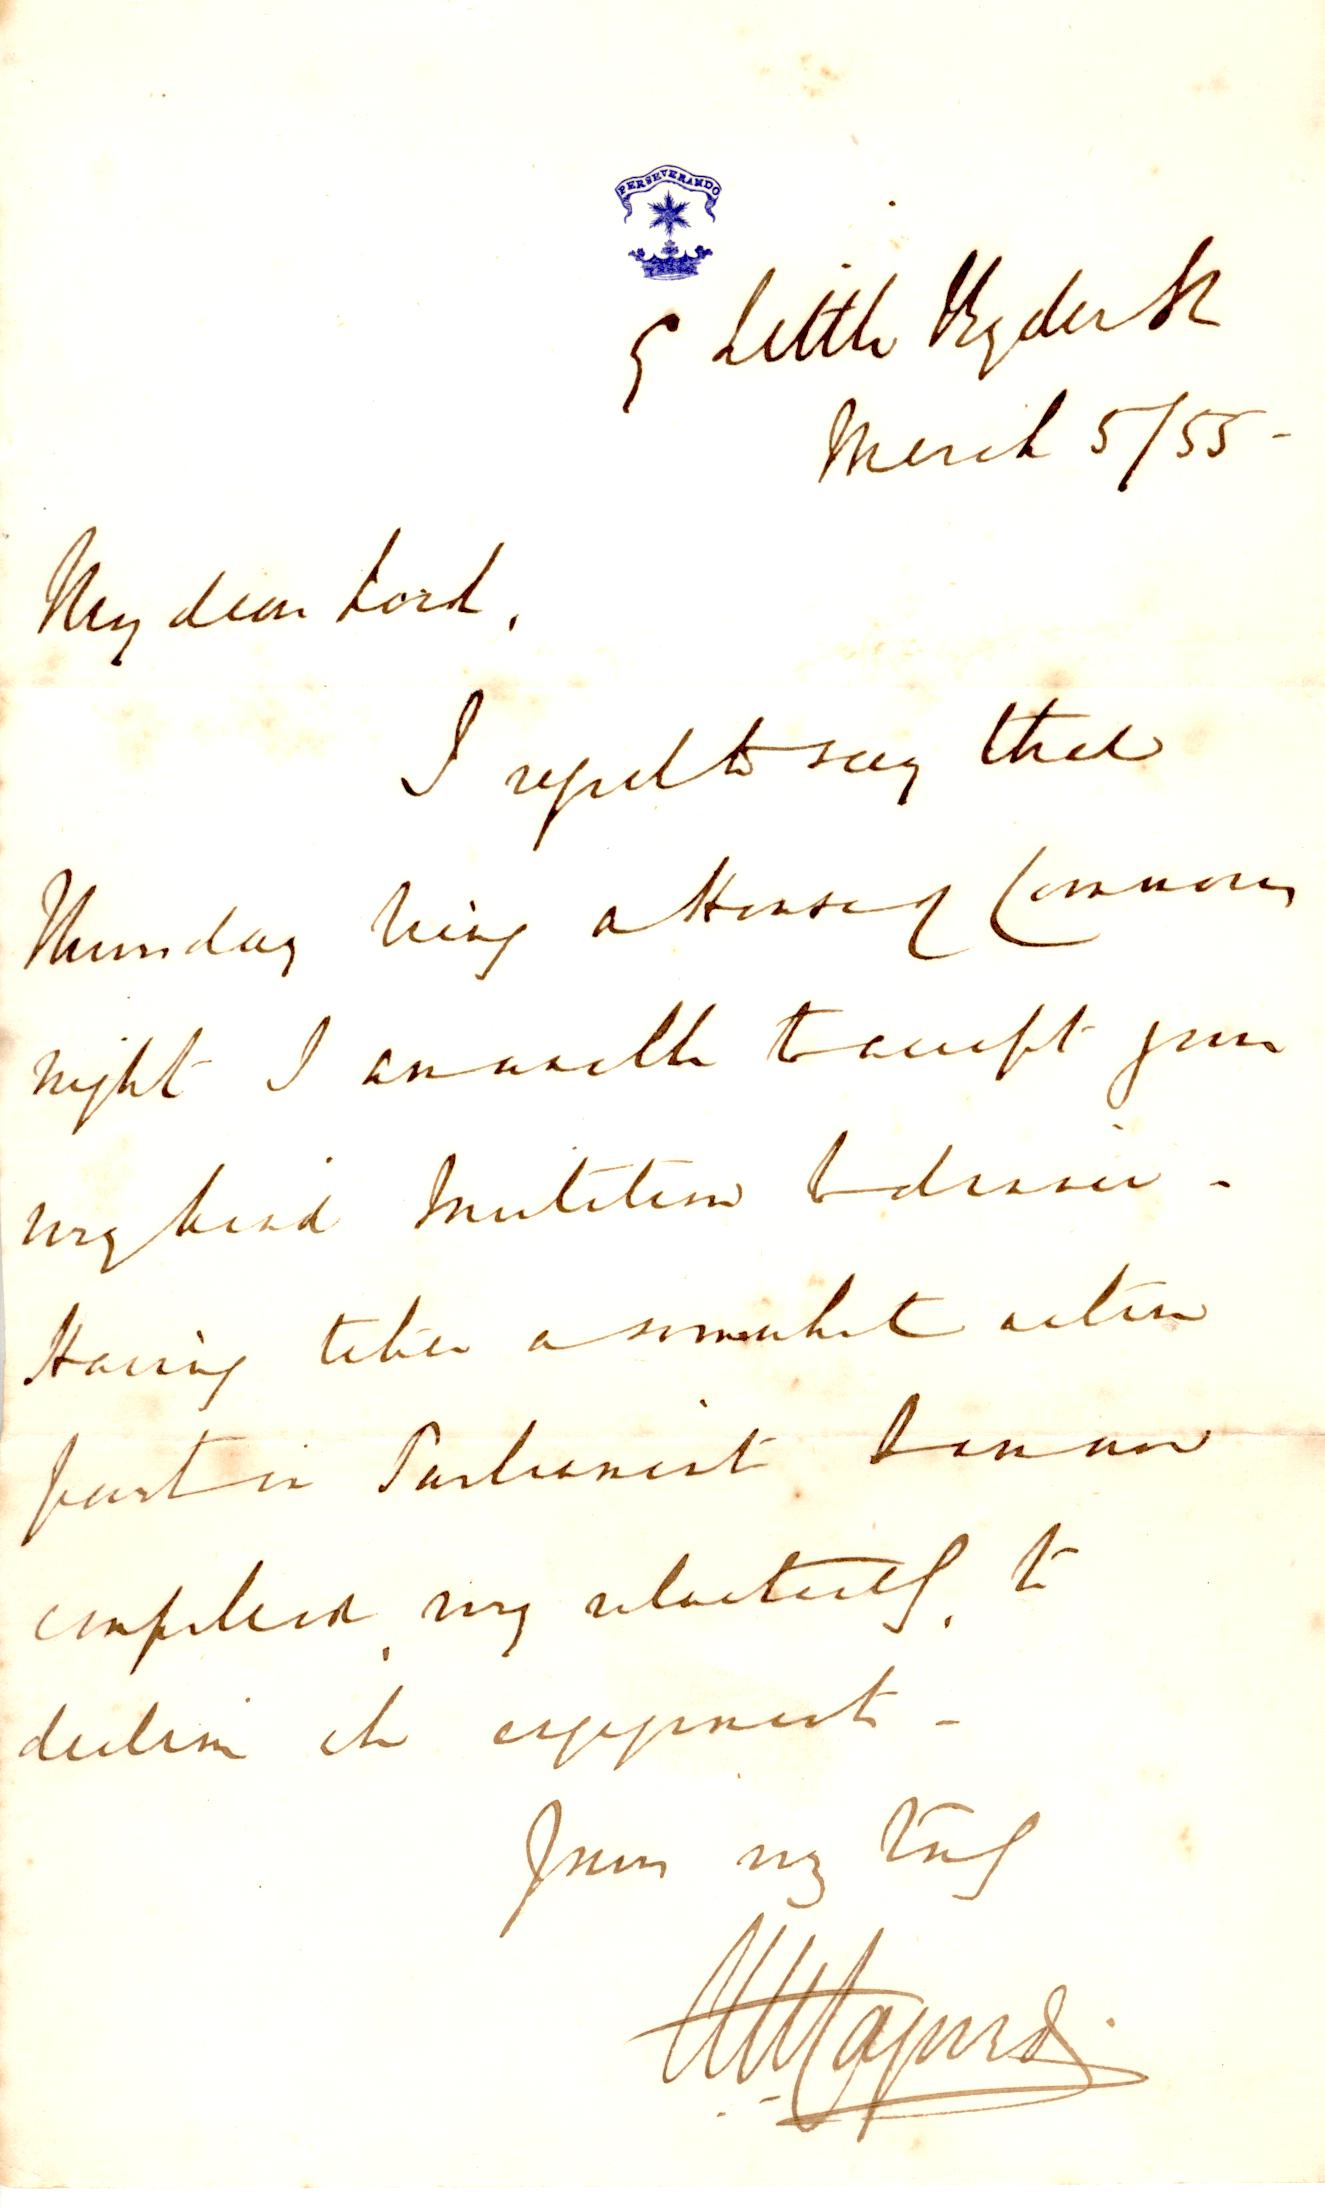 PERSEVERANDO
5 Little Ryder St
March 5/55 -
My dear Lord,
I regret to say that
Thursday being a House of Commons
night I am unable to accept your
very kind Invitation to dinner -
Having taken a somewhat active
part in Parliament I am now
compelled, very reluctantly, to
decline the engagement -
Yours very truly